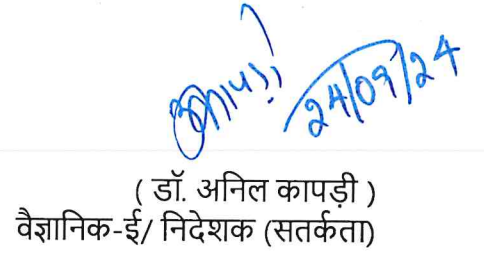 कापड़ी 24/09/24
( डॉ. अनिल कापड़ी )
वैज्ञानिक-ई/ निदेशक (सतर्कता)